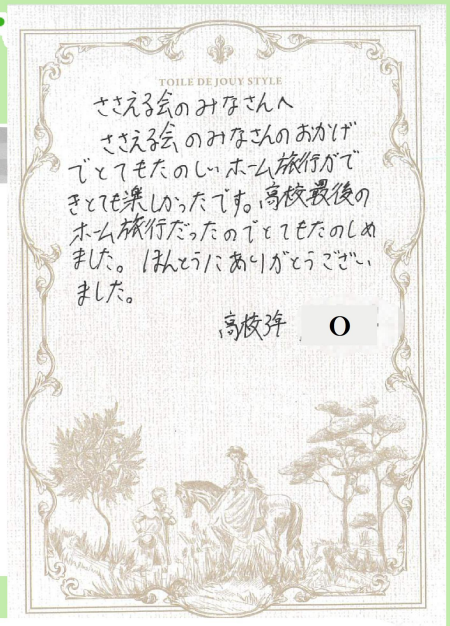 TOILE DE JOUY STYLE
ささえる会のみなさんへ
ささえる会のみなさんのおかげ
でとてもたのしいホーム旅行がで
きとても楽しかったです。高校最後の
ホーム旅行だったのでとてもたのしめ
ました。ほんとうにありがとうござい
ました。
高校3年 O